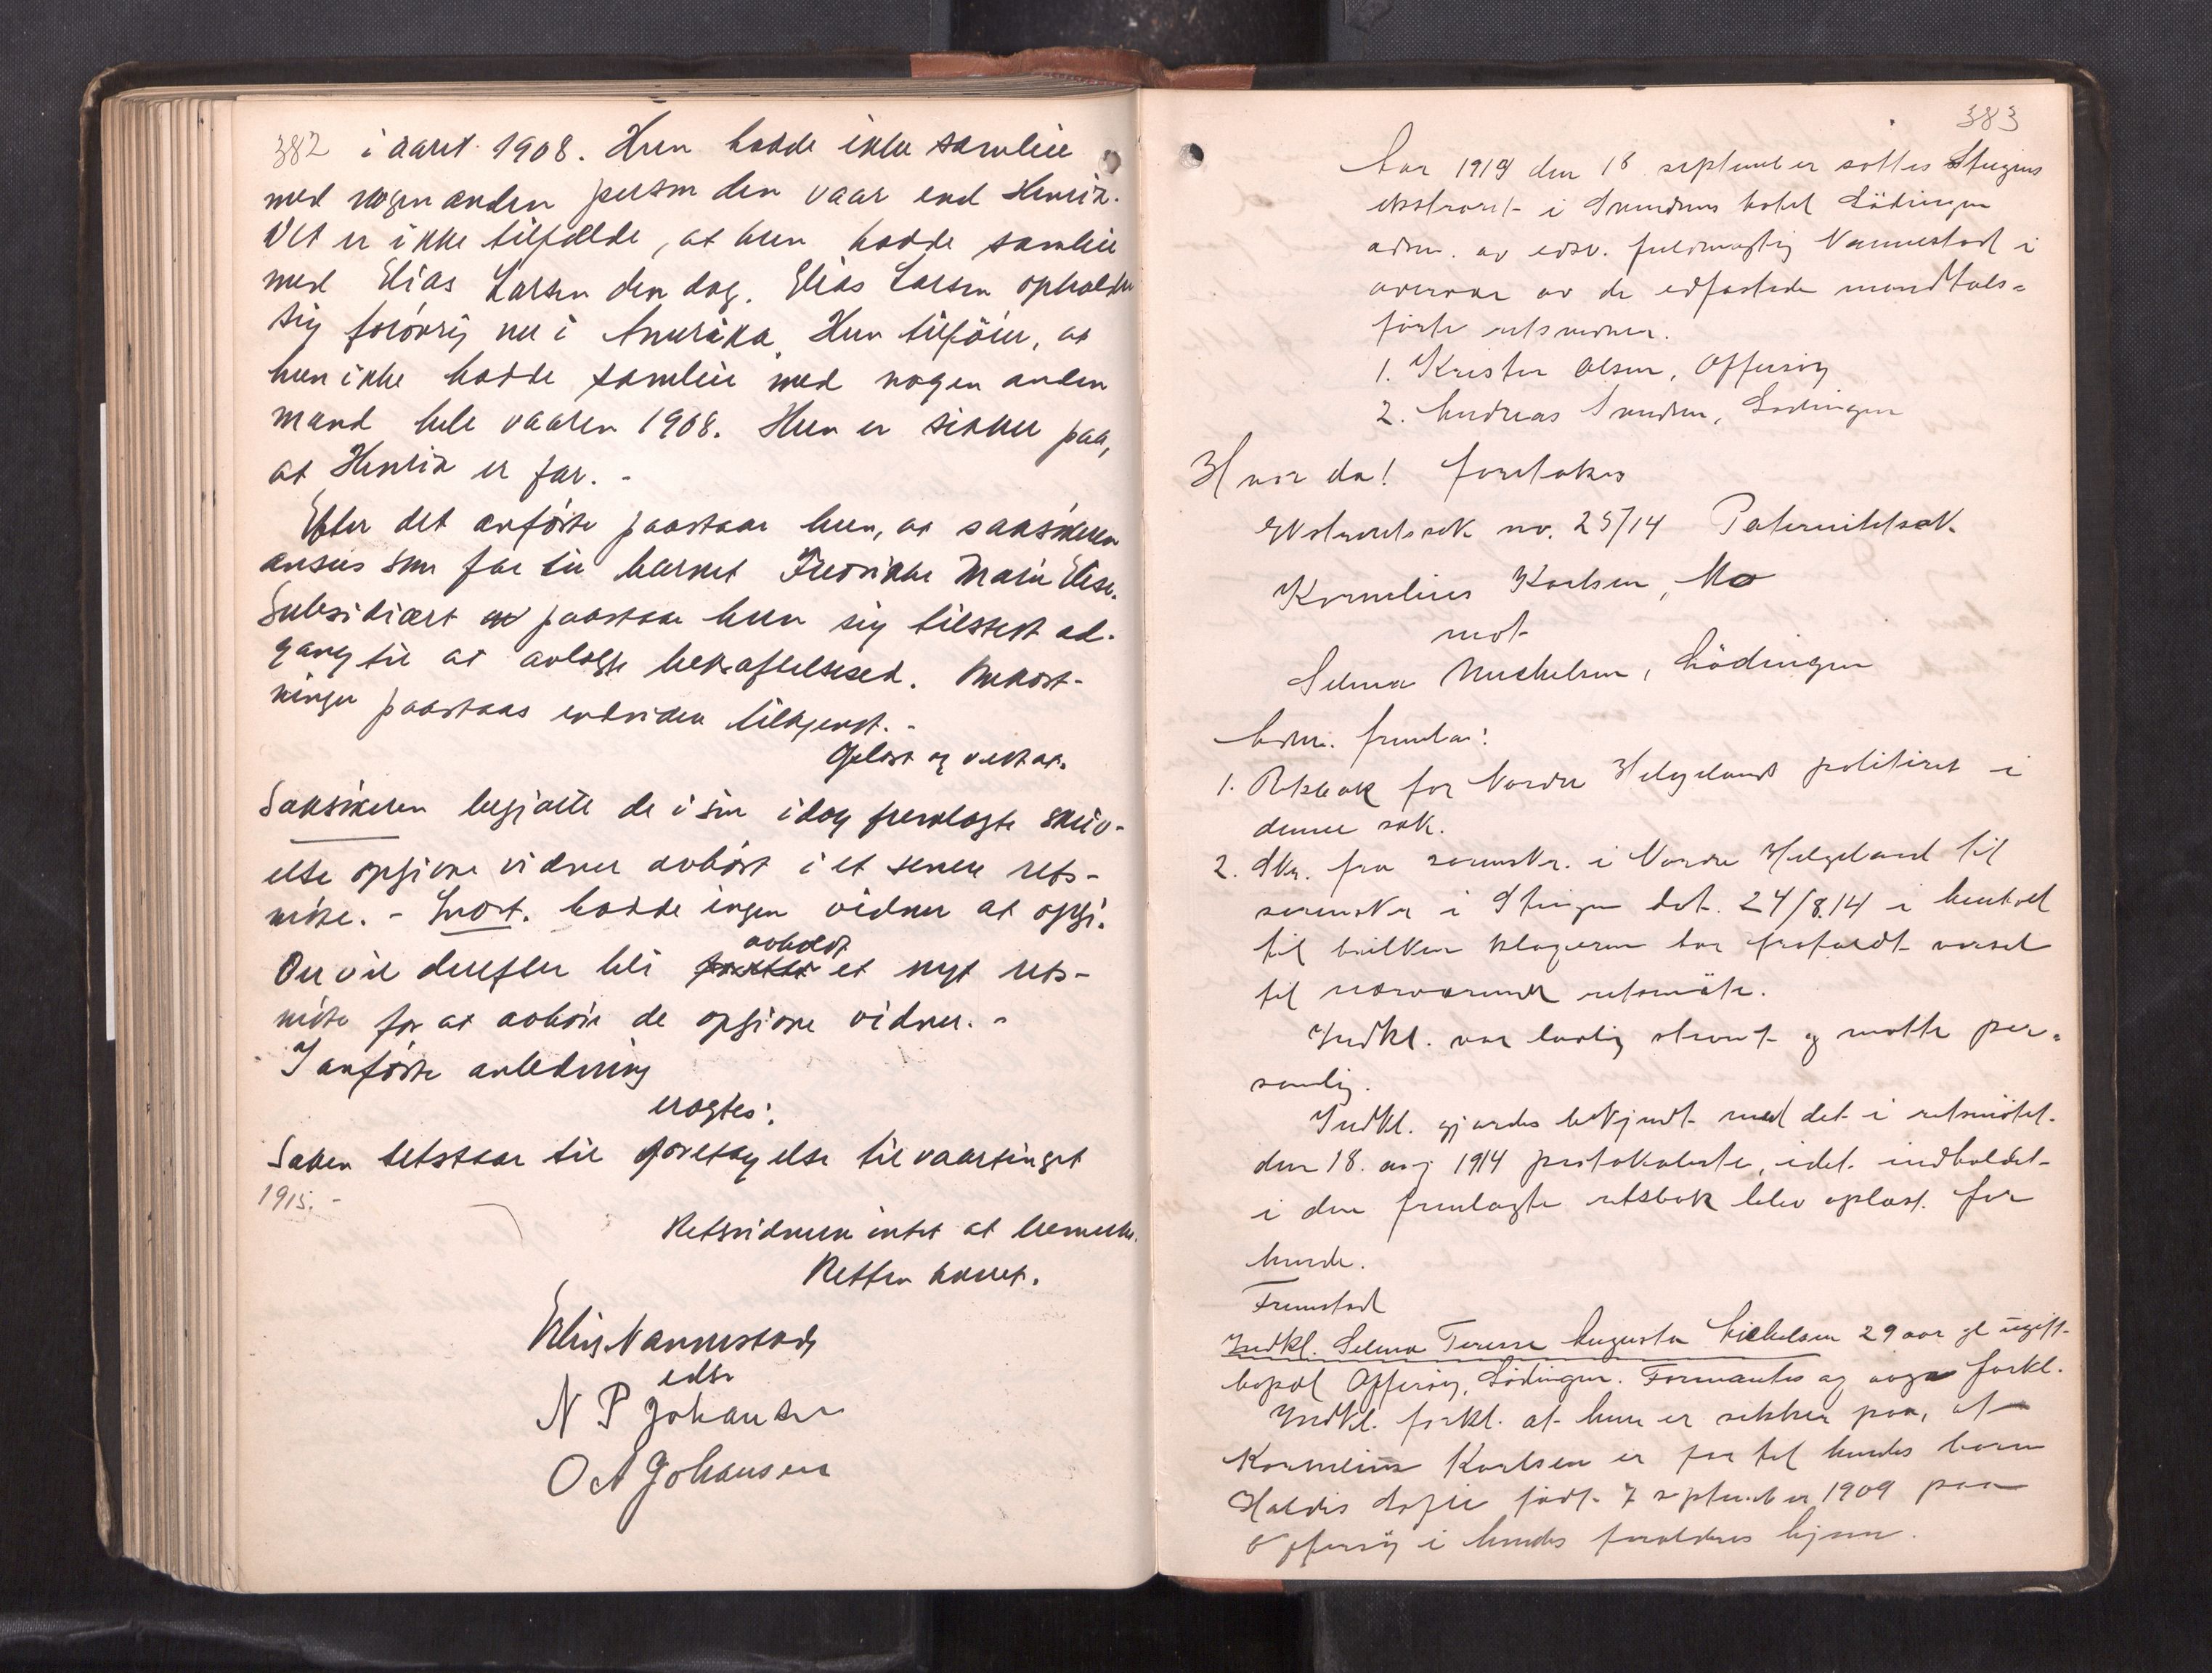 382 i aaret 1908. Hun hadde ikke samleie
med nogen anden person den vaar end Henrik.
Det er ikke tilfælde, at hun hadde samleie
med Elias Larsen den dag. Elias Larsen opholder
sig forøvrig nu i Amerika. Hun tilføier, at
hun ikke hadde samleie med nogen anden
mand hele vaaren 1908. Hun er sikker paa,
at Henrik er far. -
Efter det anførte paastaar hun, at saksøkeren
ansees som far til barnet Fredrikke Marie Elise.
Subsidiært paastaar hun sig tilstedt ad-
gang til at avlægge bekræftelsesed. Omkost-
ninger paastaaes endvidere tilkjendt. -
Oplæst og vedtat.
Saksøkeren begjærte de i sin idag fremlagte skriv-
else opgivne vidner avhørt i et senere rets-
møte. - Indst. hadde ingen vidner at opgi.
Der vil derefter bli avholdt et nyt rets-
møte for at avhøre de opgivne vidner. -
I anførte anledning
eragtes:
Saken utstaar til foretagelse til vaartinget
1915. -
Retsvidnerne intet at bemerke.
Retten hævet.
Nannestad
edsv
N P Johansen
O A Johansen
383
Aar 1914 den 18 september sattes Steigens
ekstraret i Svendsens hotel Lødingen
adm. av edsv. fuldmægtig Nannestad i
overvær av de edfæstede mandtals-
førte retsvidner.
1. Krister Olsen, Offersøy
2. Andreas Svendsen, Lødingen
Hvor da! foretokes
Ekstraretssak no. 25/14 Paternitetsak.
Kornelius Karlsen, Mo
mot
Selma Michelsen, Lødingen
Adm. fremla:
1. Retsbok for Nordre Helgeland politiret i
denne sak.
2. Skr. fra sorenskr. i Nordre Helgeland til
sorenskr i Steigen dat. 24/8.14 i henhold
til hvilken klageren har frafaldt varsel
til nærværende retsmøte.
Indkl. var lovlig stevnt og møtte per-
sonlig.
Indkl. gjordes bekjendt med det i retsmøtet
den 18. aug 1914 protokolerte, idet indholdet
i den fremlagte retsbok blev oplæst for
hende.
Fremstod
Indkl. Selma Terese Augusta Michelsen 29 aar gl ugift
bopæl Offersøy, Lødingen. Formantes og avga forkl.
Indkl. forkl. at hun er sikker paa, at
Kornelius Karlsen er far til hendes barn
Haldis Sofie født 7 september 1909 paa
Offersøy i hendes forældres hjem.